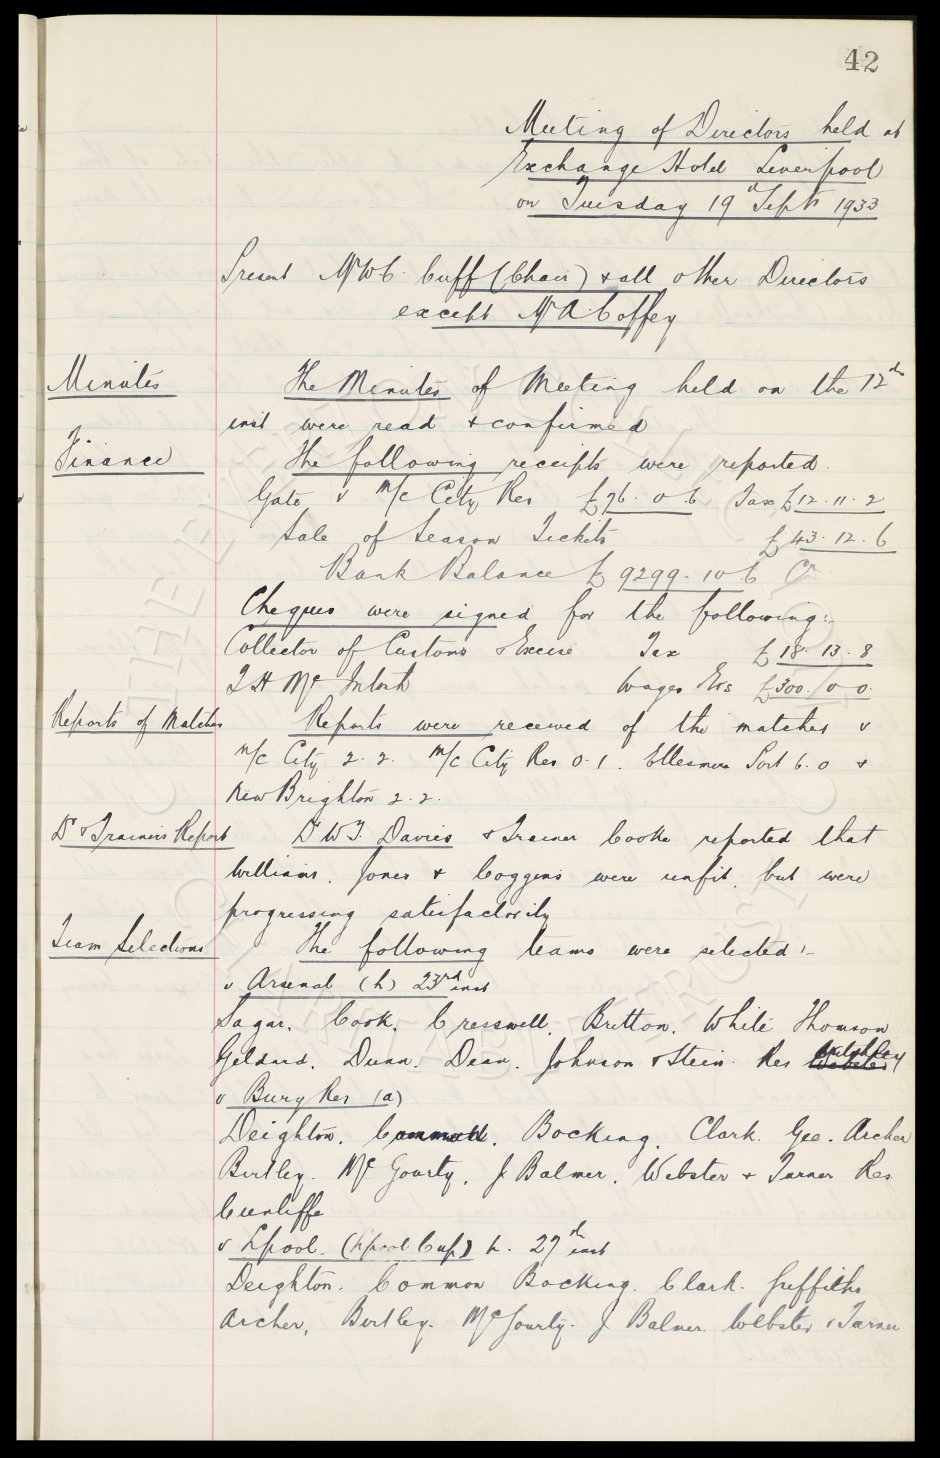 42
Meeting of Directors held at
Exchange Hotel Liverpool
on Tuesday 19th Sept 1933
Present Mr W C Cuff (Chair) & all other Directors
except Mr A Coffey
Minutes The Minutes of Meeting held on the 12th
inst were read & confirmed
Finance The following receipts were reported.
Gate v M/c City Res £76. 0. 6 Tax £12. 11. 2
Sale of Season Tickets £43. 12. 6
Bank Balance £9299. 10. 6 Cr
Cheques were signed for the following:-
Collector of Customs & Excise Tax £18. 13. 8
T H McIntosh Wages Etc £300. 0 0.
Reports of Matches Reports were received of the matches v
M/c City 2. 2. M/c City Res 0. 1. Ellesmere Port 6. 0 &
New Brighton 2. 2.
Dr & Trainers Report Dr W. F. Davies & Trainer Cooke reported that
Williams, Jones & Coggins were unfit, but were
progressing satisfactorily
Team Selections The following teams were selected:-
v Arsenal (h) 23rd inst
Sagar, Cook, Cresswell, Britton, White Thomson
Geldard, Dunn, Dean, Johnson & Stein. Res Webster Critchley
v Bury Res (a)
Deighton, Common, Bocking, Clark. Gee. Archer
Birtley. McGourty, J Balmer, Webster & Turner Res
Cunliffe
v Lpool. (Lpool Cup) h. 27th inst
Deighton. Common Bocking. Clark. Griffiths
Archer, Birtley. McGourty. J Balmer. Webster & Turner